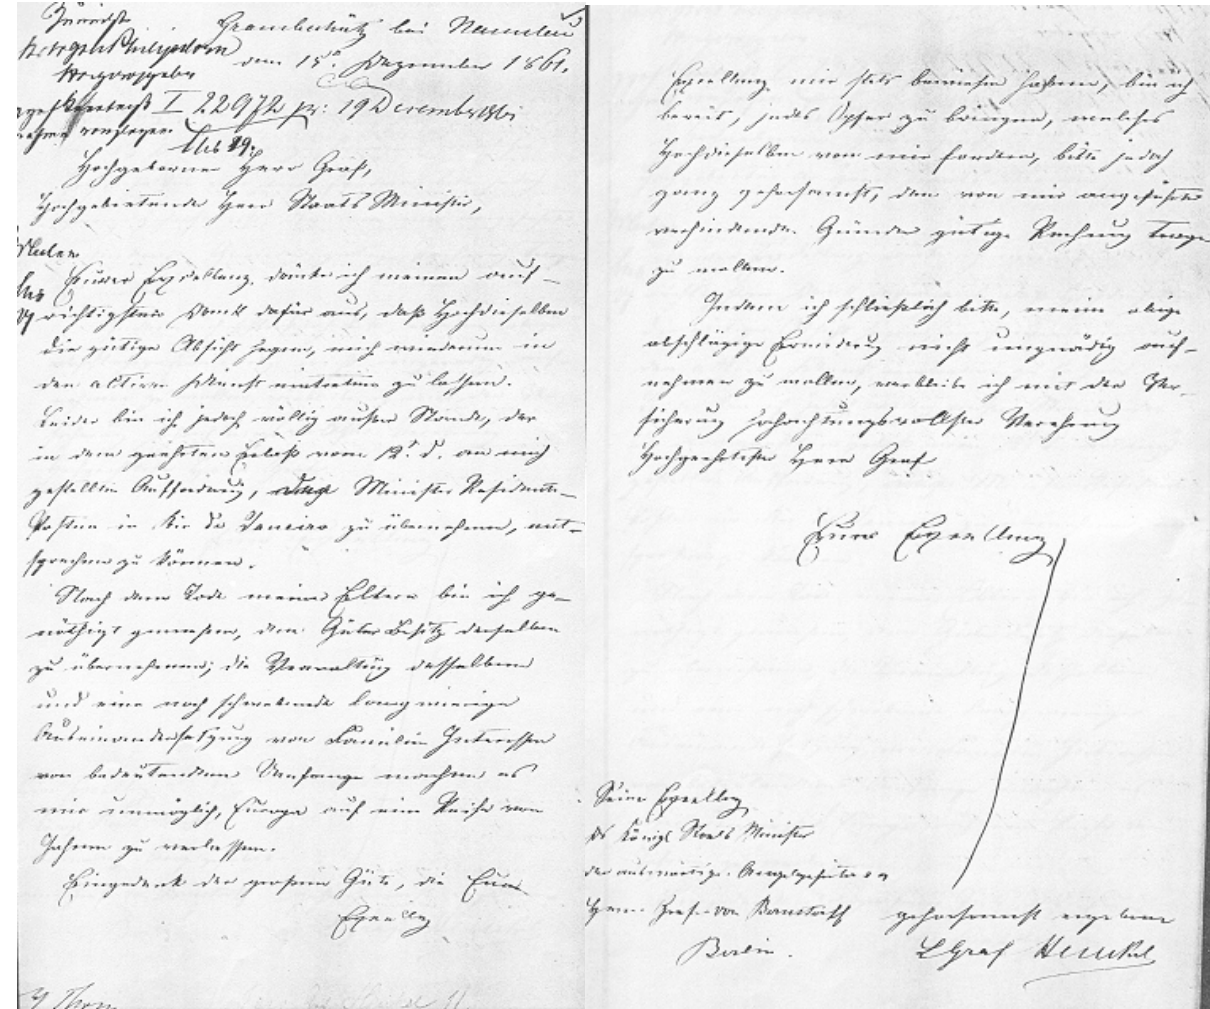 Zunächst
Grambschütz bei Namslau
den 15t. Dezember 1861.
I 22972 pr: 19 December 1861
Hochgeborner Herr Graf,
Hochgebietender Herr Staats Minister,
Eurer Excellenz drücke ich meinen auf-
richtigsten Dank dafür aus, daß Hochdieselben
die gütige Absicht hegen, mich wiederum in
den activen Dienst eintreten zu lassen.
Leider bin ich jedoch völlig außer Stande, der
in dem geehrten Erlaß vom 12t. d. an mich
gestellten Aufforderung, Minister Residenten-
Posten in Rio de Janeiro zu übernehmen, ent-
sprechen zu können.
Nach dem Tode meiner Eltern bin ich ge-
nöthigt gewesen, den Güter Besitz derselben
zu übernehmen; die Verwaltung desselben
und eine noch schwebende langwierige
Auseinandersetzung von Familien Interessen
von bedeutendem Umfange machen es
mir unmöglich, Europa auf eine Reihe von
Jahren zu verlassen.
Eingedenk der großen Güte, die Eure
Excellenz
Excellenz mir stets bewiesen haben, bin ich
bereit, jedes Opfer zu bringen, welches
Hochdieselben von mir fordern, bitte jedoch
ganz gehorsamst, den von mir angeführten
verhindernden Gründen gütige Rechnung tragen
zu wollen.
Indem ich schließlich bitte, meine obige
abschlägige Erwiderung nicht ungnädig auf-
nehmen zu wollen, verbleibe ich mit der Ver-
sicherung hochachtungsvollster Verehrung
Hochgeehrtester Herr Graf
Eurer Excellenz
Seiner Excellenz
des Königl Staats Minister
der auswärtigen Angelegenheiten
Herrn Grafen von Bernstorff
gehorsamst ergebener
Berlin.
L Graf Henckel